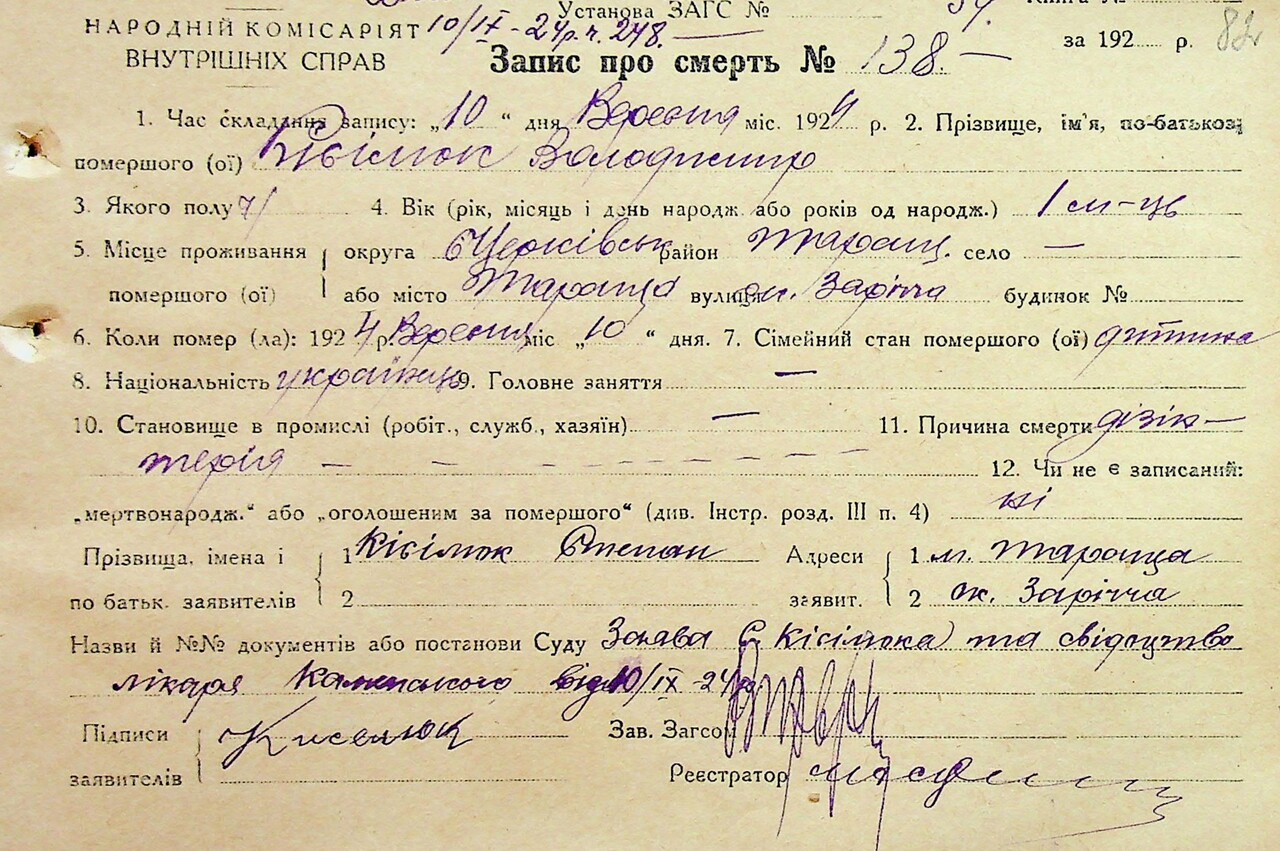 Установа ЗАГС №
НАРОДНІЙ КОМІСАРІЯТ 10/IX - 24 р. ч. 248. за 192 р. 82
ВНУТРІШНІХ СПРАВ Запис про смерть № 138.
1. Час складання запису: „10“ дня Вересня міс. 1924 р. 2. Прізвище, ім'я, по-батькові
помершого (ої) Кісілюк Володимир
3. Якого полу ч/ 4. Вік (рік, місяць і день народж. або років од народж.) 1 м-ць
5. Місце проживання округа БЦерківськ район Таращ. село —
помершого (ої) або місто Тараща вулиця ок. Заріччя будинок №
6. Коли помер (ла): 1924 р. Вересня міс „10“ дня. 7. Сімейний стан помершого (ої) дитина
8. Національність українець 9. Головне заняття —
10. Становище в промислі (робіт., служб., хазяїн) — 11. Причина смерти дізін-
терія — — — — — — — 12. Чи не є записаний:
„мертвонародж.“ або „оголошеним за помершого“ (див. Інстр. розд. III п. 4) ні
Прізвища, імена і 1 Кісілюк Степан Адреси 1 м. Тараща
по батьк. заявителів 2 заявит. 2 ок. Заріччя
Назви й №№ документів або постанови Суду Заява (С. Кісілюка) та свідоцтво
лікаря Каменського від 10/IX - 24 р.
Підписи Киселюк Зав. Загсом
заявителів Реєстратор